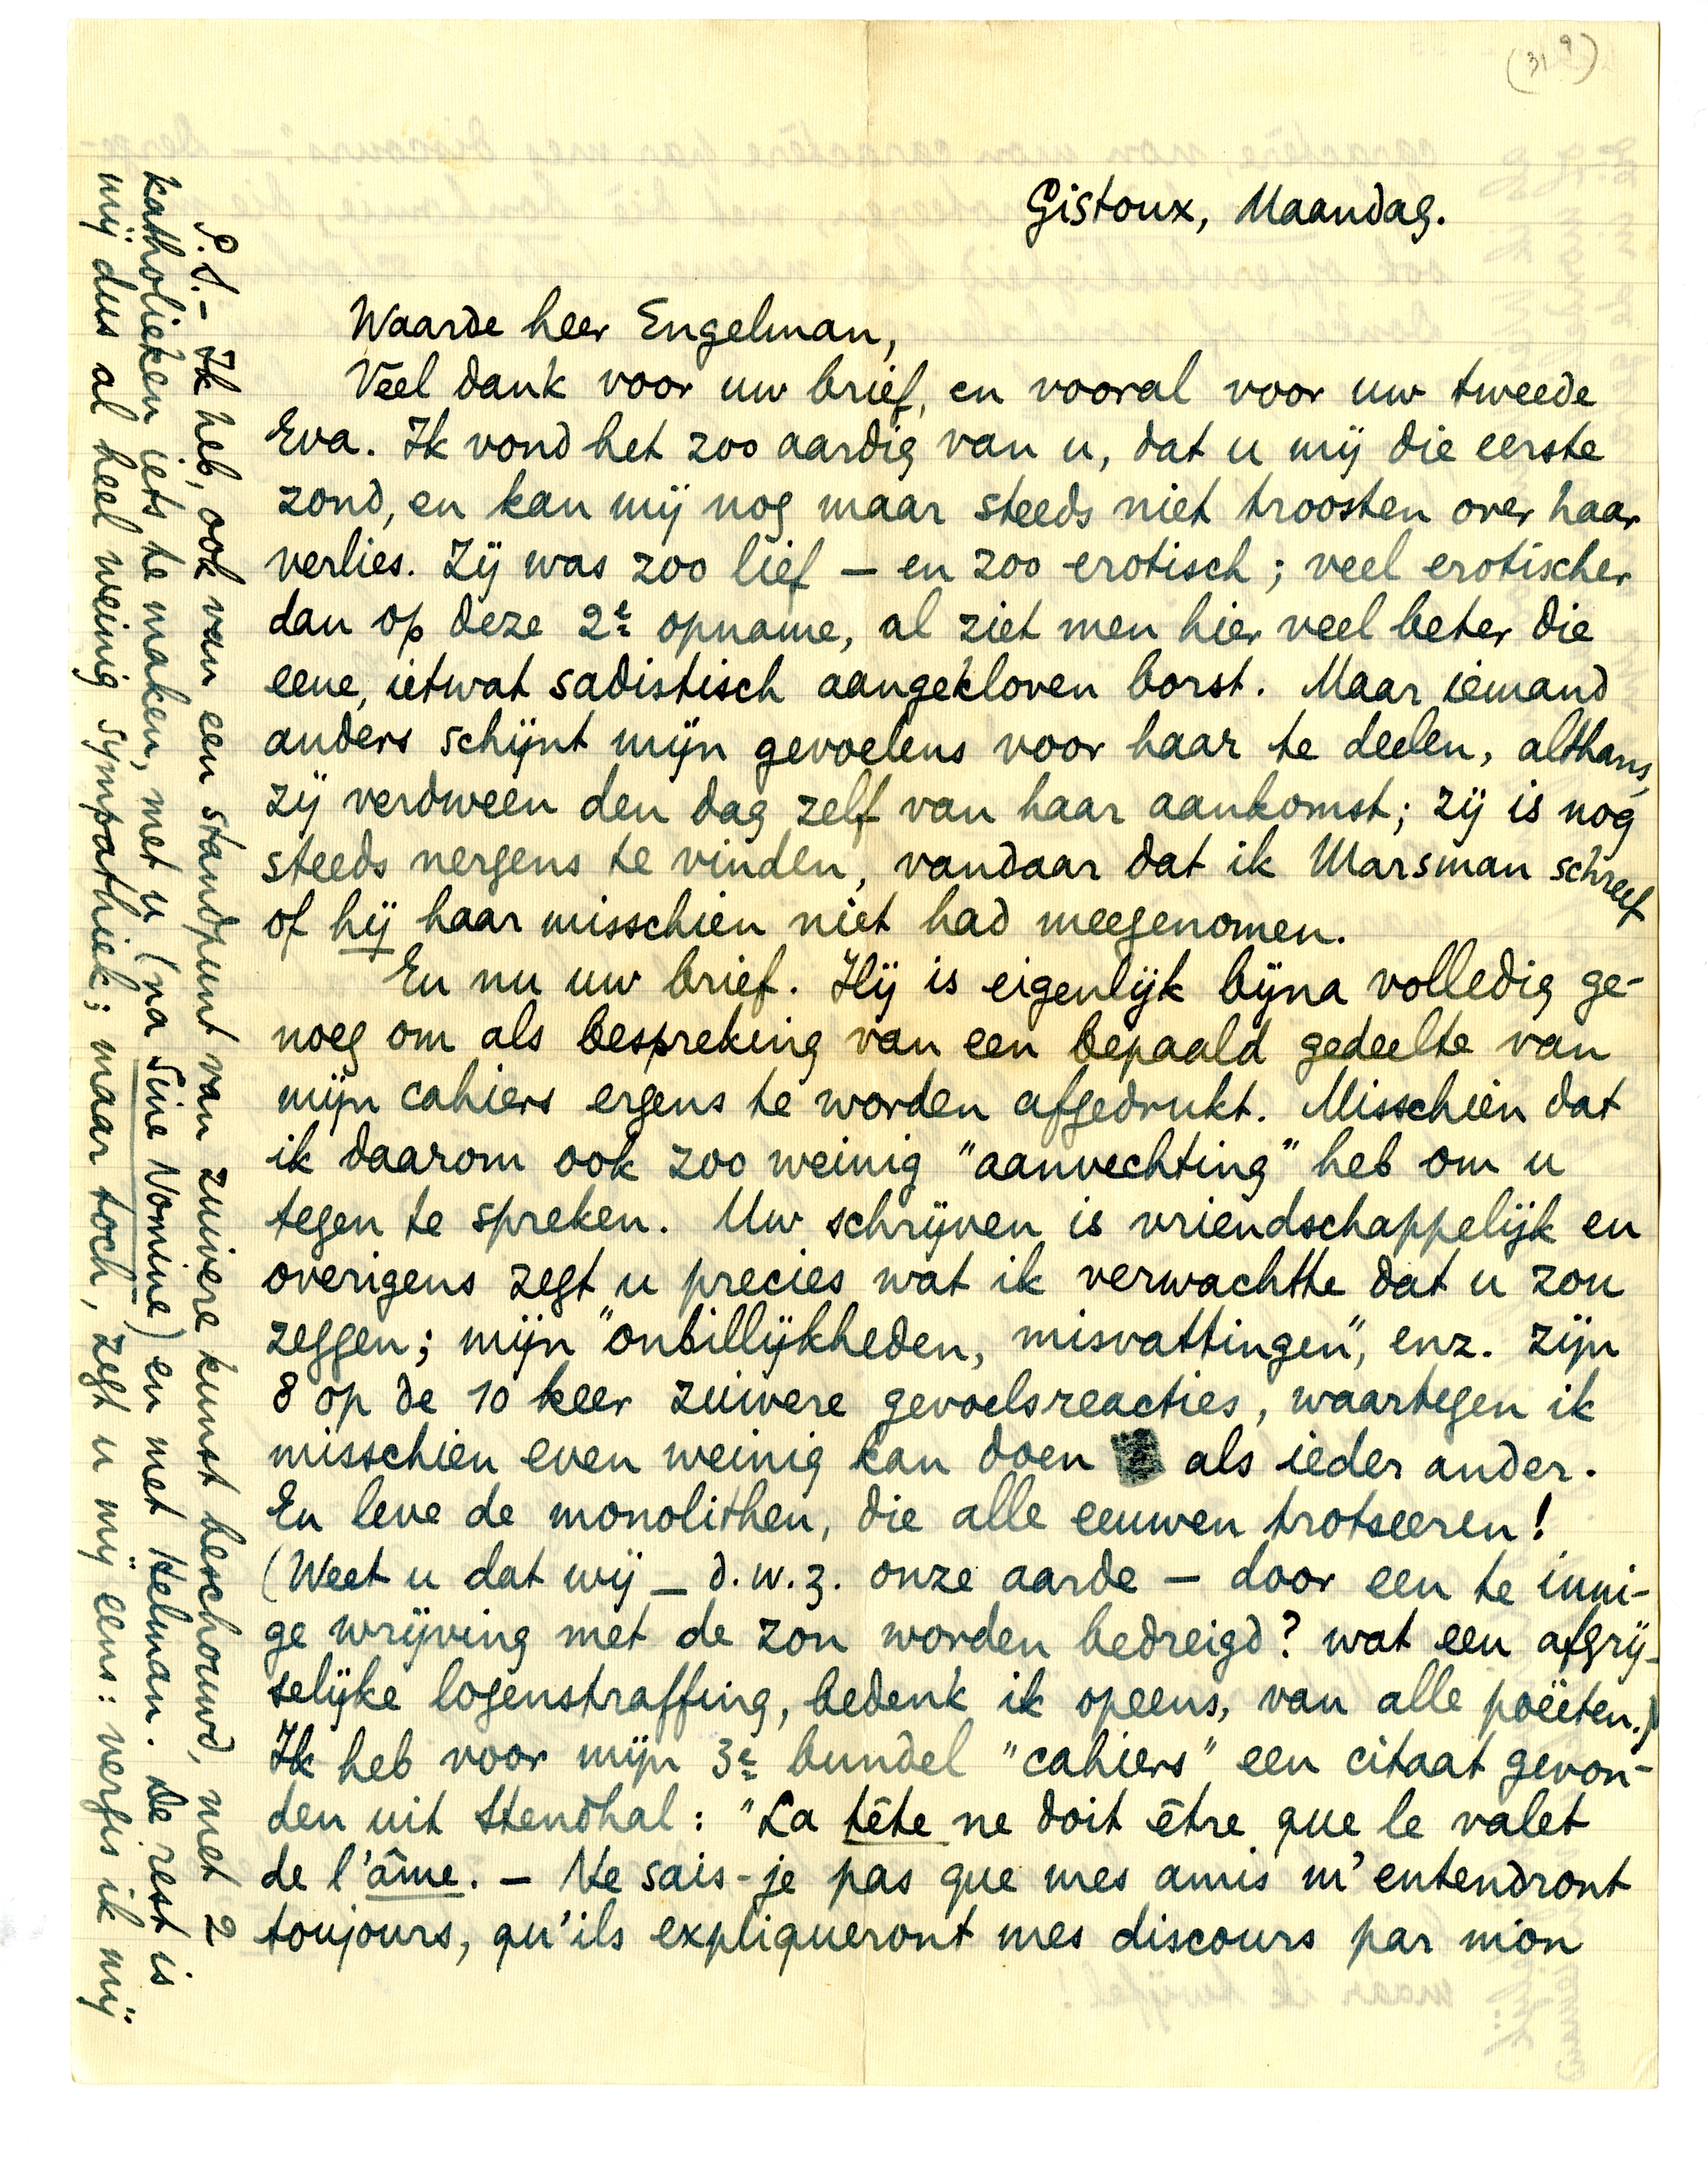 (319)
Gistoux, Maandag.
Waarde heer Engelman,
Veel dank voor uw brief, en vooral voor uw tweede
Eva. Ik vond het zoo aardig van u, dat u mij die eerste
zond, en kan mij nog maar steeds niet troosten over haar
verlies. Zij was zoo lief – en zoo erotisch; veel erotischer
dan op deze 2e opname, al ziet men hier veel beter die
eene, ietwat sadistisch aangekloven borst. Maar iemand
anders schijnt mijn gevoelens voor haar te deelen, althans,
zij verdween den dag zelf van haar aankomst; zij is nog
steeds nergens te vinden, vandaar dat ik Marsman schreef
of hij haar misschien niet had meegenomen.
En nu uw brief. Hij is eigenlijk bijna volledig ge-
noeg om als bespreking van een bepaald gedeelte van
mijn cahiers ergens te worden afgedrukt. Misschien dat
ik daarom ook zoo weinig "aanvechting" heb om u
tegen te spreken. Uw schrijven is vriendschappelijk en
overigens zegt u precies wat ik verwachtte dat u zou
zeggen; mijn "onbillijkheden, misvattingen", enz. zijn
8 op de 10 keer zuivere gevoelsreacties, waartegen ik
misschien even weinig kan doen als ieder ander.
En leve de monolithen, die alle eeuwen trotseeren!
(Weet u dat wij – d.w.z. onze aarde – door een te inni-
ge wrijving met de zon worden bedreigd? wat een afgrij-
selijke logenstraffing, bedenk ik opeens, van alle poëeten.)
Ik heb voor mijn 3e bundel "cahiers" een citaat gevon-
den uit Stendhal: "La tête ne doit être que le valet
de l'âme. – Ne sais-je pas que mes amis m'entendront
toujours, qu'ils expliqueront mes discours par mon
P.S. – Ik heb, ook van een standpunt van zuivere kunst beschouwd, met 2
katholieken iets te maken, met u (na Sine Nomine) en met Helman. De rest is
mij dus al heel weinig sympathiek; maar toch, zegt u mij eens: vergis ik mij